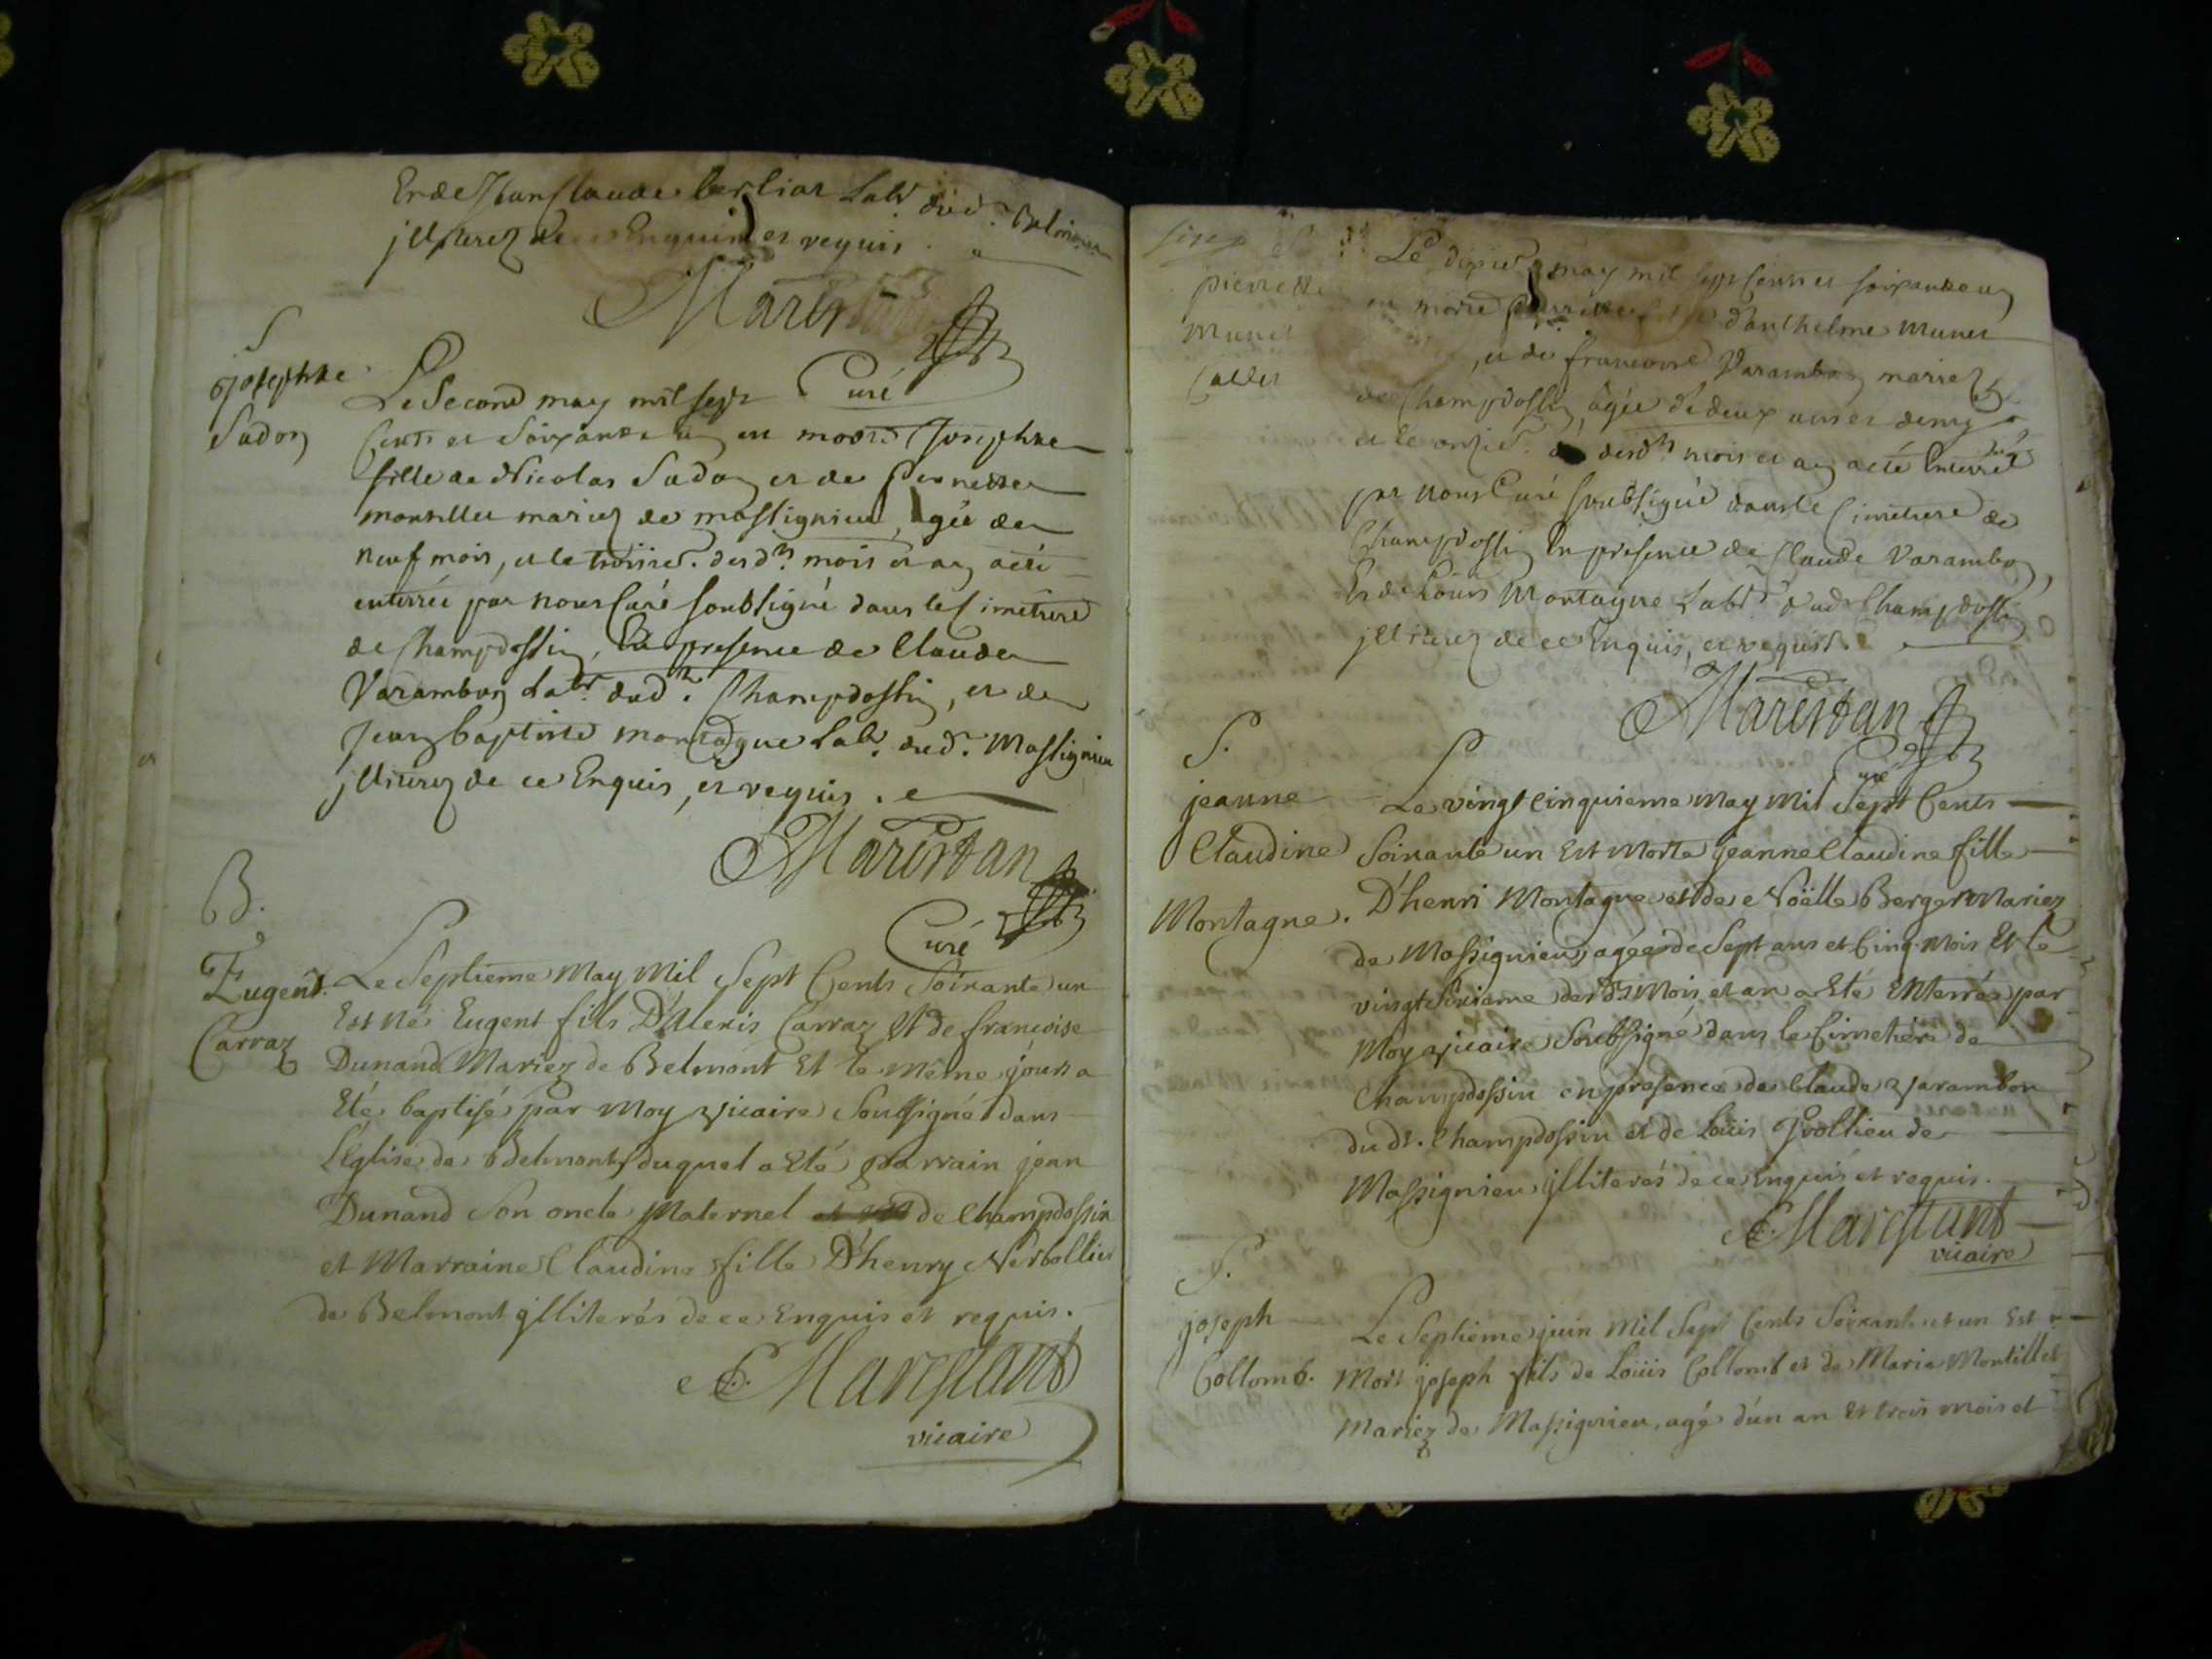 Et de Jean Claude berliar Labr dud.t Belmont
jlliterez de ce Enquis et requis.
Maristan
Curé
S
Josephte
Sadon
Le Second may mil sept
Cents et Soixante un est morte Josephte
fille de Nicolas Sadon et de Pernette
montillet mariez de massignieu, agée de
neuf mois, et le troisie. desd.ts mois et an a eté
enterrée par nous Curé soubsigné dans le Cimetiere
de Champdossin, En presence de Claude
Varambon Labr. dud.t Champdossin, et de
Jean baptiste montagne Labr. dud.t Massignieu
jlliterez de ce Enquis, et requis.
Maristan
Curé
B.
Eugent.
Carraz
Le Septieme May Mil Sept Cents Soixante un
Est né Eugent fils D'Alexis Carraz Et de francoise
Dunand Mariez de Belmont Et le même jour a
Eté baptisé par Moy vicaire Soussigné dans
L'Eglise de Belmont, duquel a Eté parrain jean
Dunand Son oncle Maternel de Champdossin
et Marraine Claudine fille D'henry Nerbollier
de Belmont jlliterés de ce Enquis et requis.
Maristant
vicaire
pierrette
Munet
Le dixie may mil sept Cents et soixante un
est morte pierrette fille d'anthelme Munet
et de francoise Varambon mariez
de Champdossin, agée de deux ans et demy
et le onzie. desd.ts mois et an a eté Enterrée
par nous Curé soubsigné dans le Cimetiere de
Champdossin En presence de Claude Varambon,
Et de Louis Montagne Labr. dud. Champdossin
jlliterez de ce Enquis, et requis.
Maristan
Curé
S.
jeanne
Claudine
Montagne.
Le vingt cinquieme May Mil Sept Cents
Soixante un Est Morte jeanne Claudine fille
D'henri Montagne et de Noëlle Berger Mariez
de Massignieu, agée de Sept ans et Cinq Mois Et le
vingt Sixieme des dts Mois et an a Eté Enterrée par
Moy vicaire Soussigné dans le Cimetiere de
Champdossin en presence de Claude varambon
du dt. Champdossin et de Louis Jvollieu de
Massignieu jlliterés de ce Enquis et requis.
Maristant
vicaire
S.
joseph
Collomb.
Le Septieme juin Mil Sept Cents Soixante et un Est
Mort joseph fils de Louis Collomb et de Marie Montillet
Mariez de Massignieu, agé d'un an Et trois Mois et